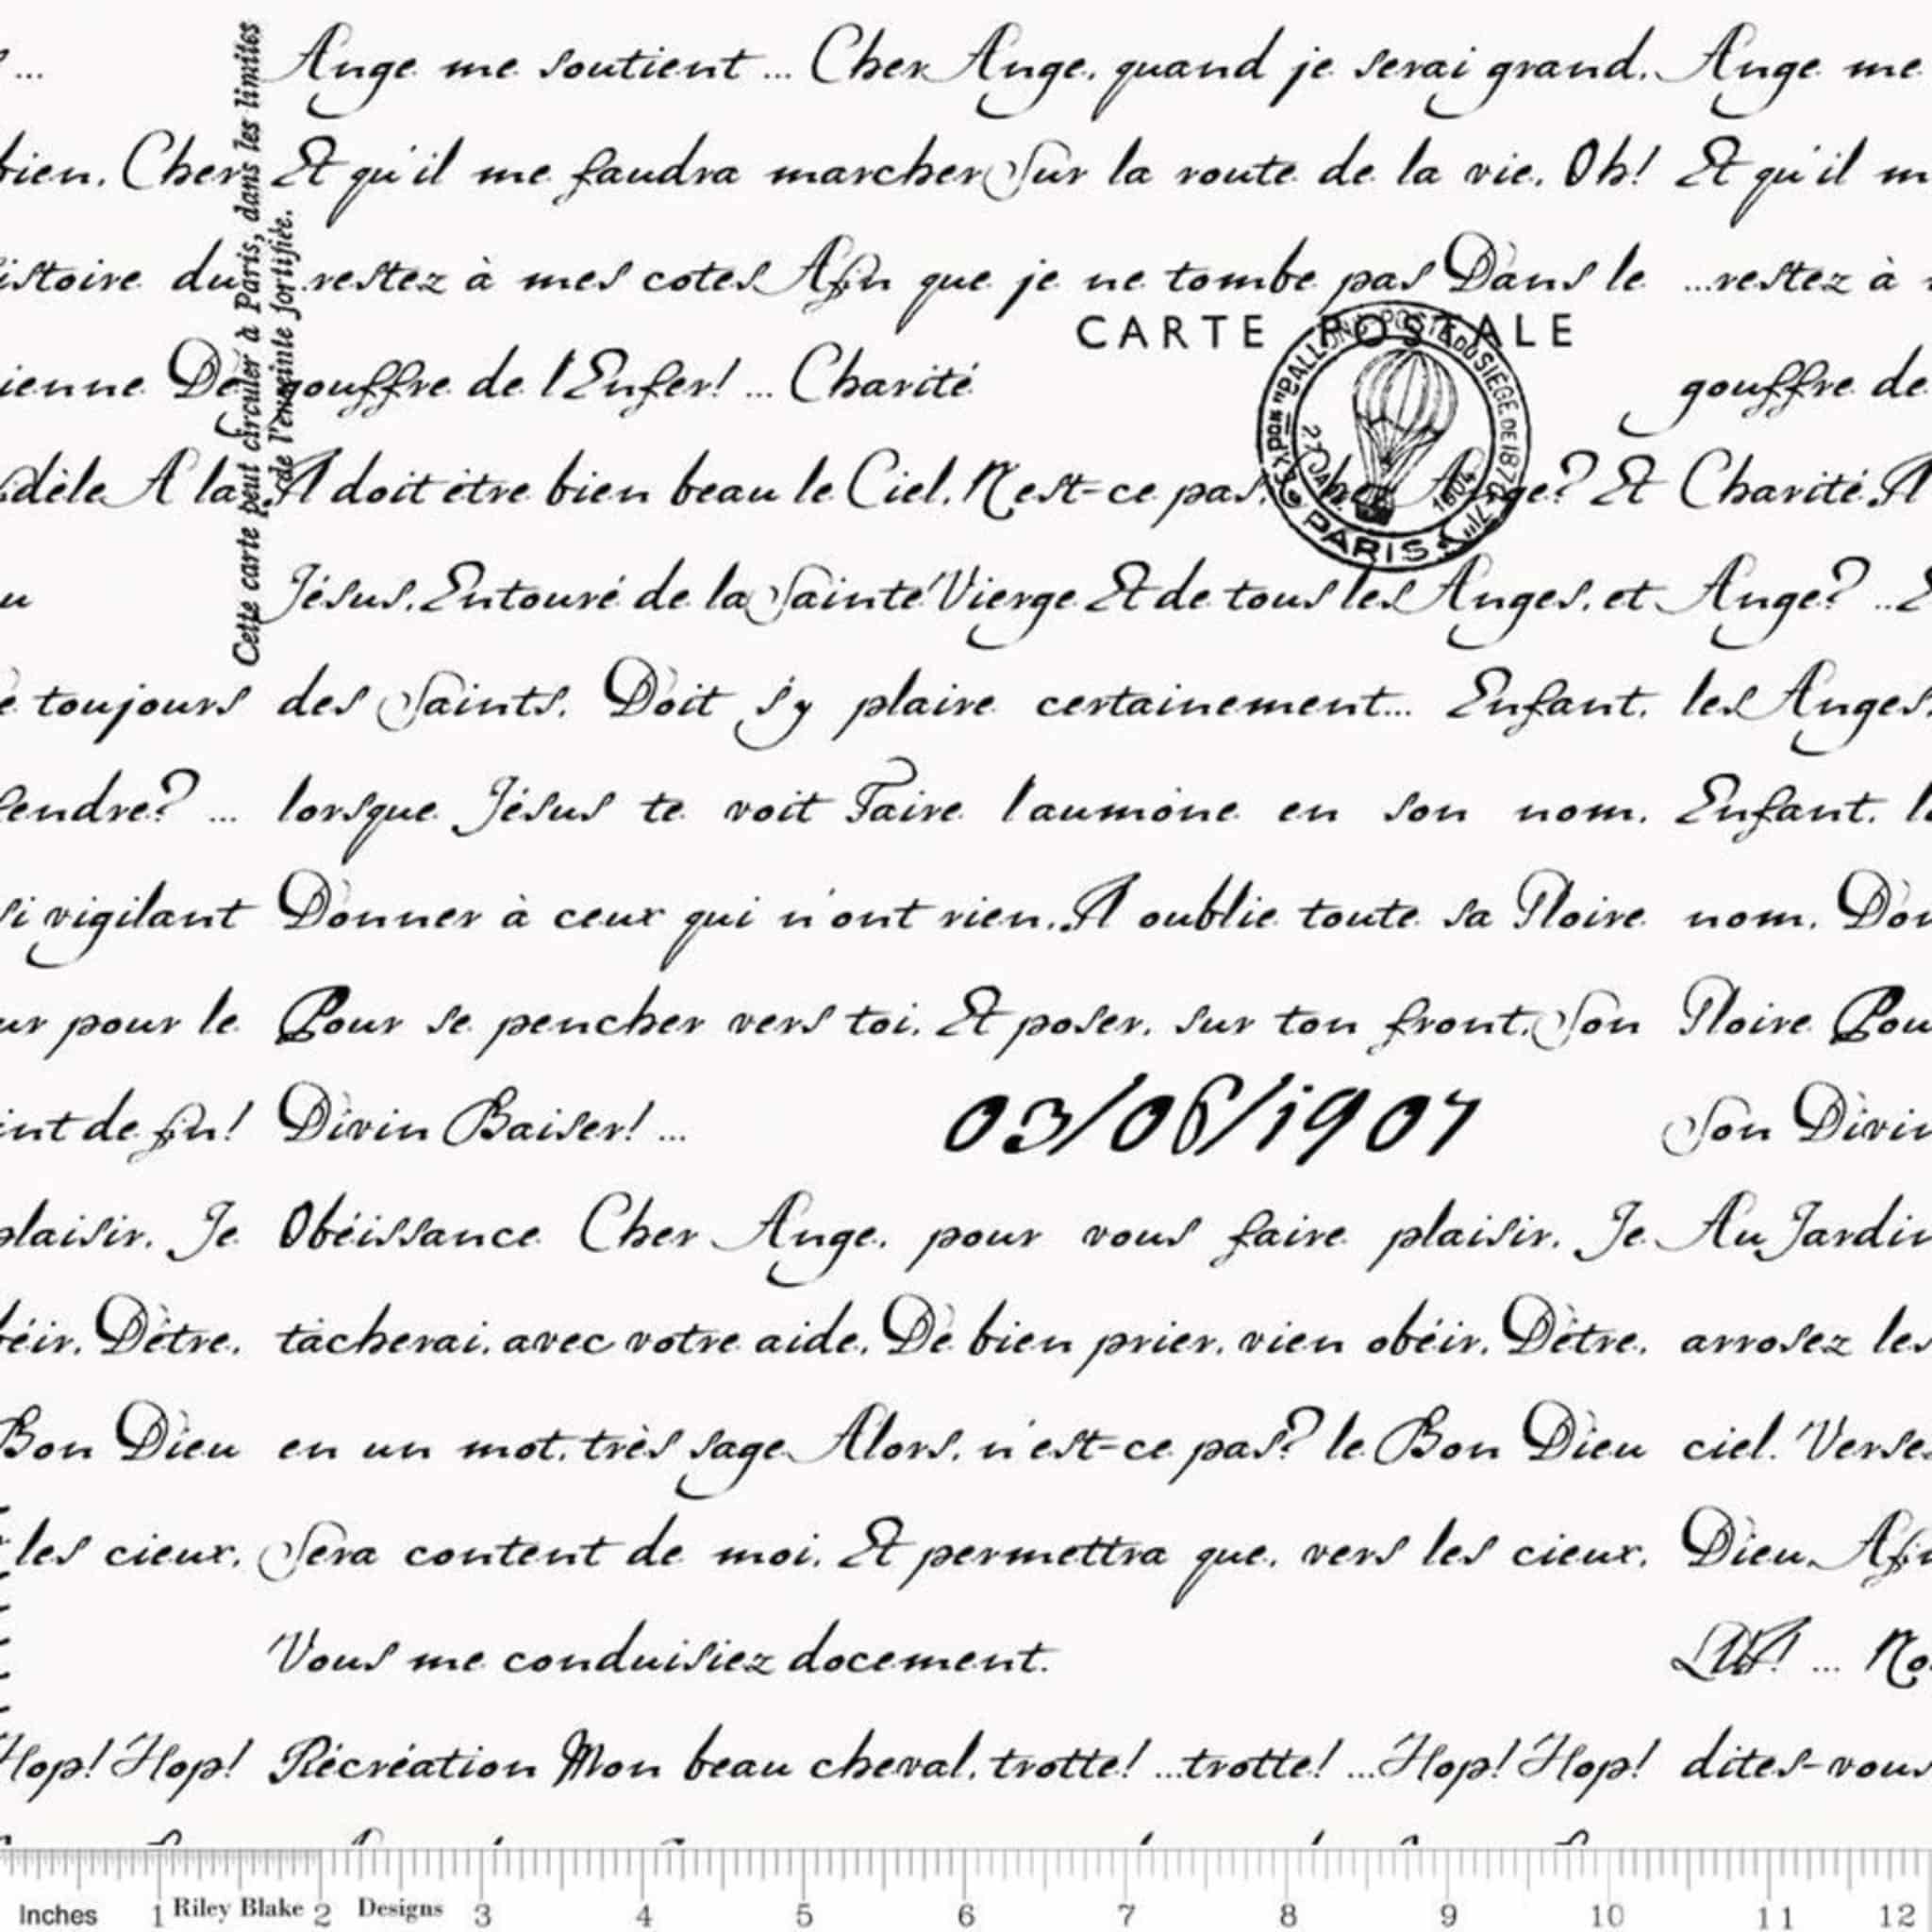 ... Ange me soutient ... Cher Ange, quand je serai grand, Ange me
bien, Cher Et qu'il me faudra marcher Sur la route de la vie, Oh! Et qu'il m
istoire du ...restez à mes cotes Afin que je ne tombe pas Dans le ...restez à
CARTE POSTALE
ienne De gouffre de l'Enfer! ... Charité gouffre de
dèle A la Il doit être bien beau le Ciel, N'est-ce pas, Cher Ange? Et Charité Il
u Jésus, Entouré de la Sainte Vierge Et de tous les Anges, et Ange? ..E
toujours des Saints, Doit s'y plaire certainement... Enfant, les Anges,
endre? ... lorsque Jésus te voit Faire l'aumône en son nom, Enfant, l
si vigilant Donner à ceux qui n'ont rien, Il oublie toute sa Gloire nom, Don
ur pour le Pour se pencher vers toi, Et poser, sur ton front, Son Gloire Pou
int de fin! Divin Baiser! ... 03/06/1907 Son Divin
plaisir, Je Obéissance Cher Ange, pour vous faire plaisir, Je Au Jardin
béir, D'être, tâcherai, avec votre aide, De bien prier, vien obéir, D'être, arrosez les
Bon Dieu en un mot, très sage Alors, n'est-ce pas? le Bon Dieu ciel. Verse
les cieux, Sera content de moi, Et permettra que, vers les cieux, Dieu, Afi
Vous me conduisiez docement. ... No
Hop! Hop! Récréation Mon beau cheval, trotte! ...trotte! ...Hop! Hop! dites-vous
Cette carte peut circuler à Paris, dans les limites
de l'enceinte fortifiée.
PAR BALLON POSTE DU SIEGE DE 1870-71
27 JAN. 1904
PARIS
Inches 1 Riley Blake 2 Designs 3 4 5 6 7 8 9 10 11 12